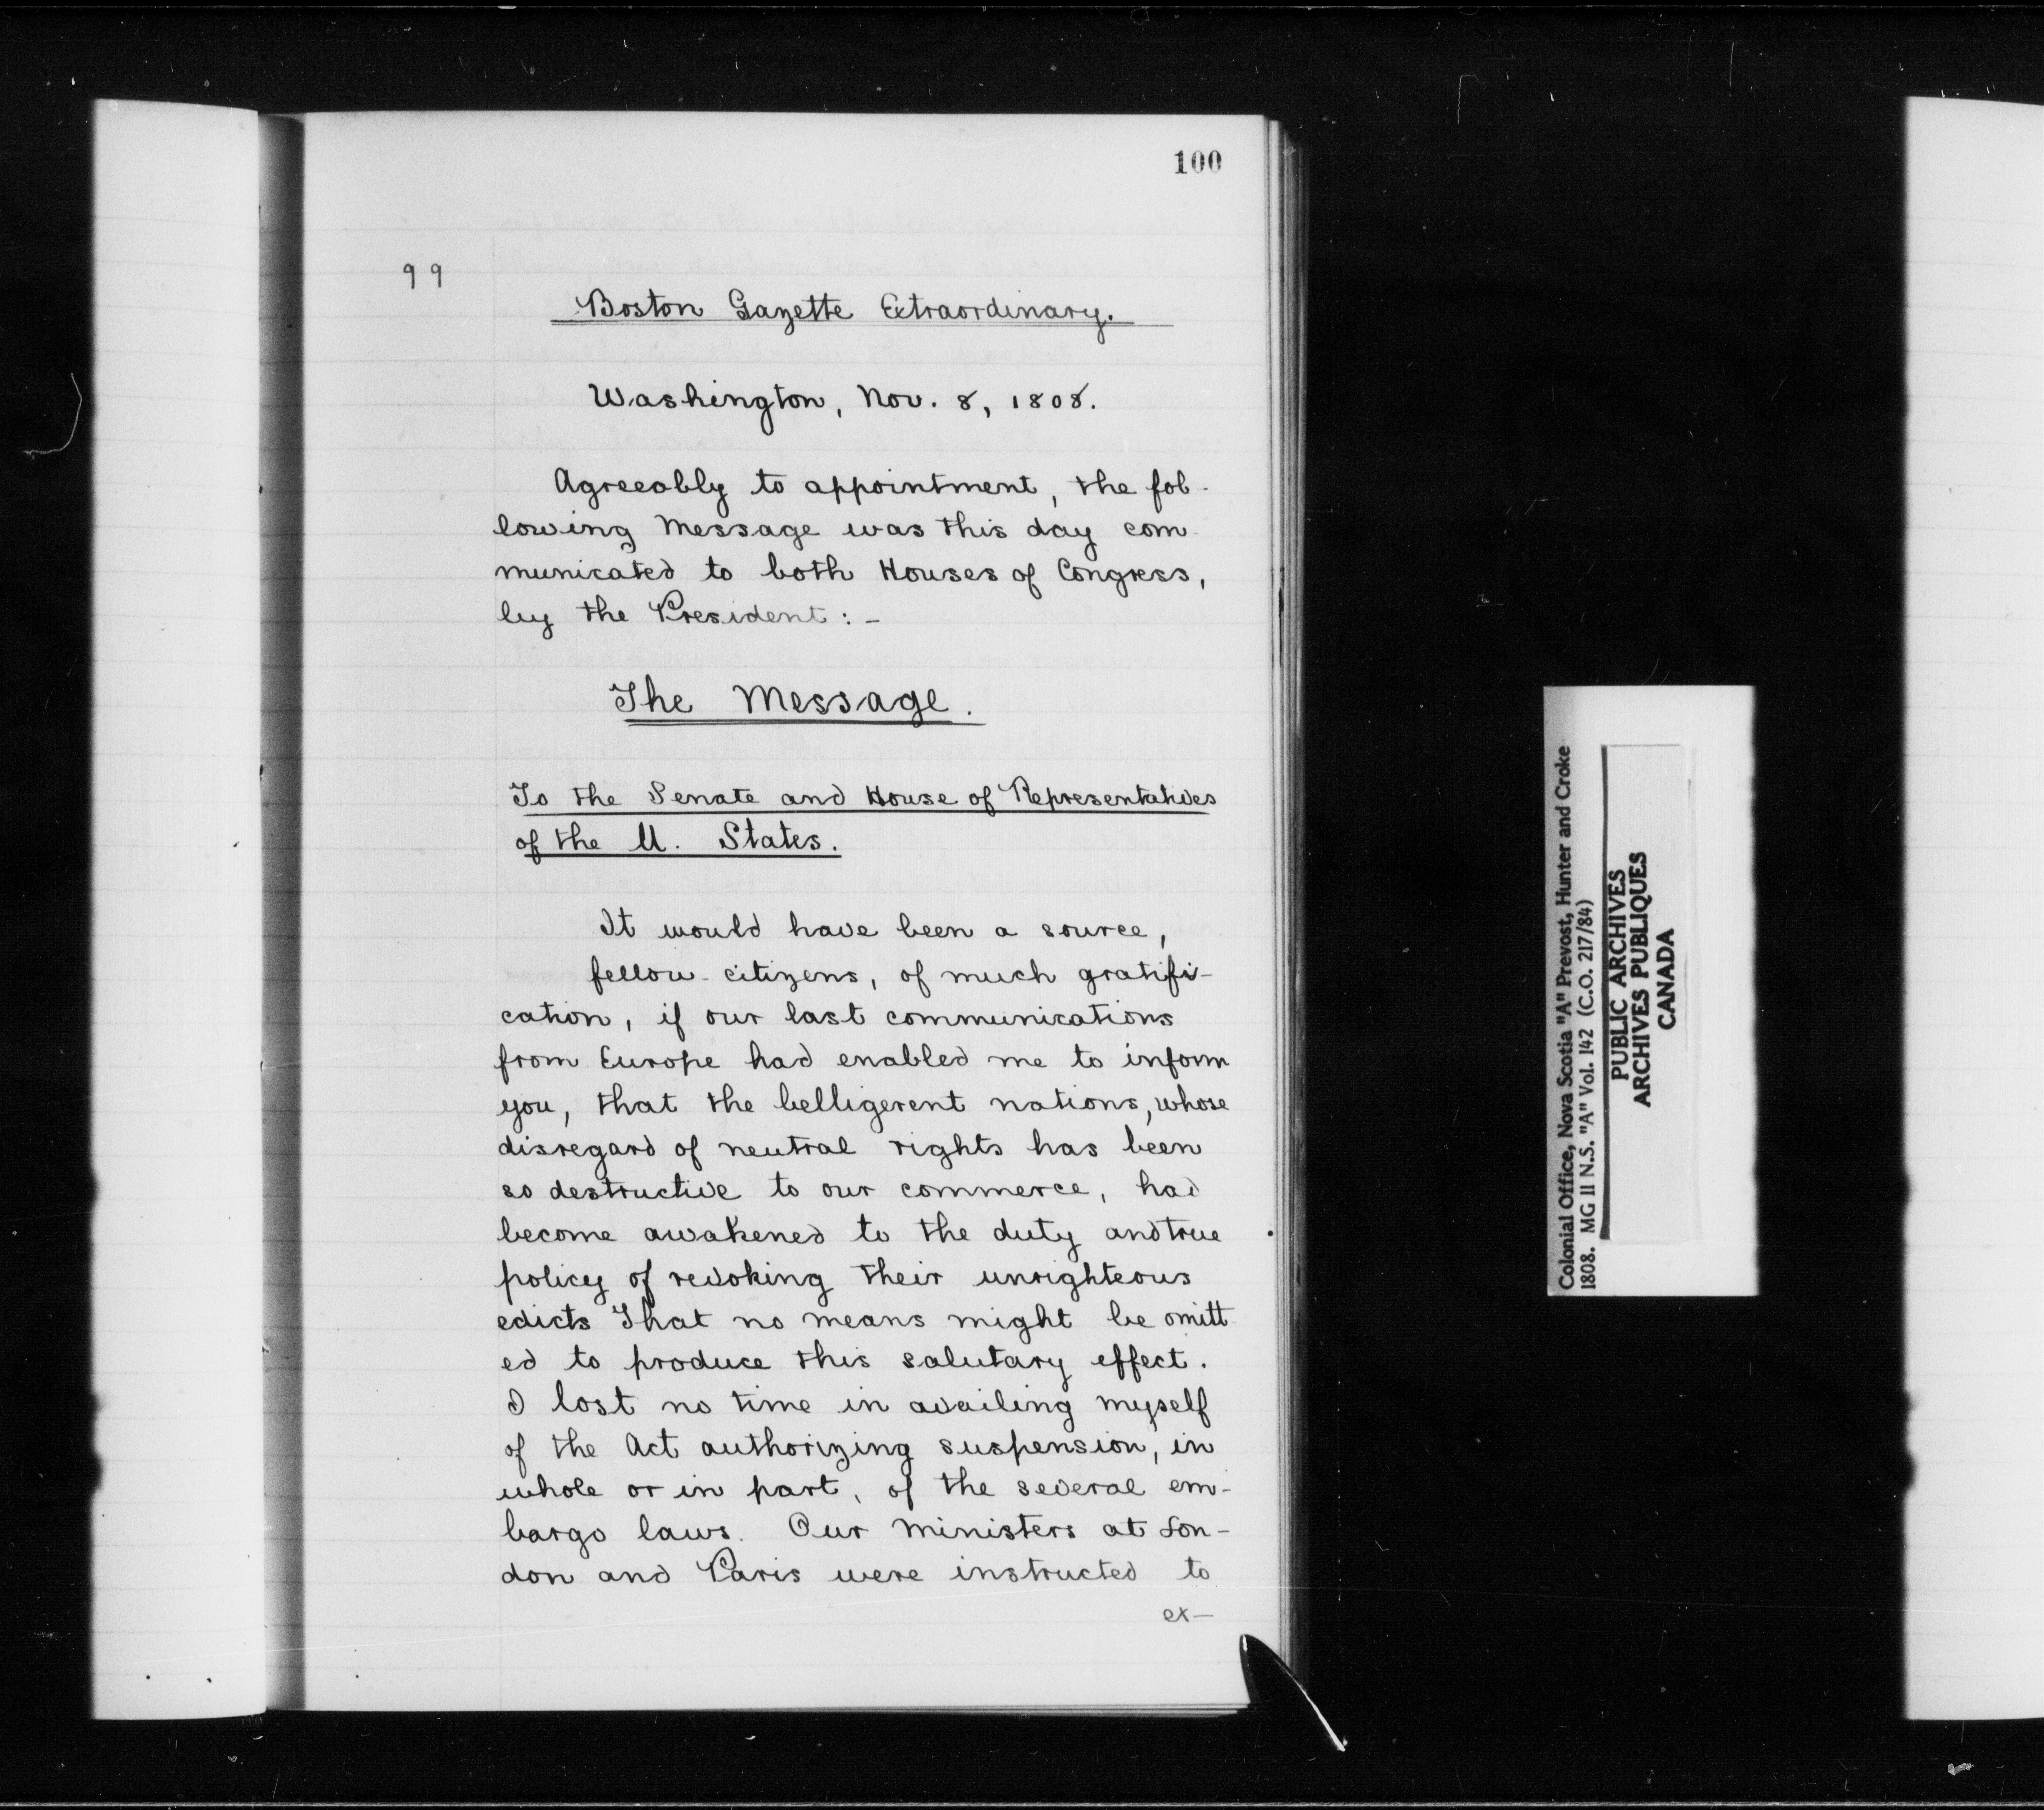 100
99
Boston Gazette Extraordinary.
Washington, Nov. 8, 1808.
Agreeably to appointment, the fol-
lowing Message was this day com-
municated to both Houses of Congress,
by the President :-
The Message.
To the Senate and House of Representatives
of the U. States.
It would have been a source,
fellow-citizens, of much gratifi-
cation, if our last communications
from Europe had enabled me to inform
you, that the belligerent nations, whose
disregard of neutral rights has been
so destructive to our commerce, had
become awakened to the duty and true
policy of revoking their unrighteous
edicts That no means might be omitt
ed to produce this salutary effect.
I lost no time in availing myself
of the Act authorizing suspension, in
whole or in part, of the several em-
bargo laws. Our Ministers at Lon-
don and Paris were instructed to
ex-
Colonial Office, Nova Scotia "A" Prevost, Hunter and Croke
1808. MG 11 N.S. "A" Vol. 142 (C.O. 217/84)
PUBLIC ARCHIVES
ARCHIVES PUBLIQUES
CANADA